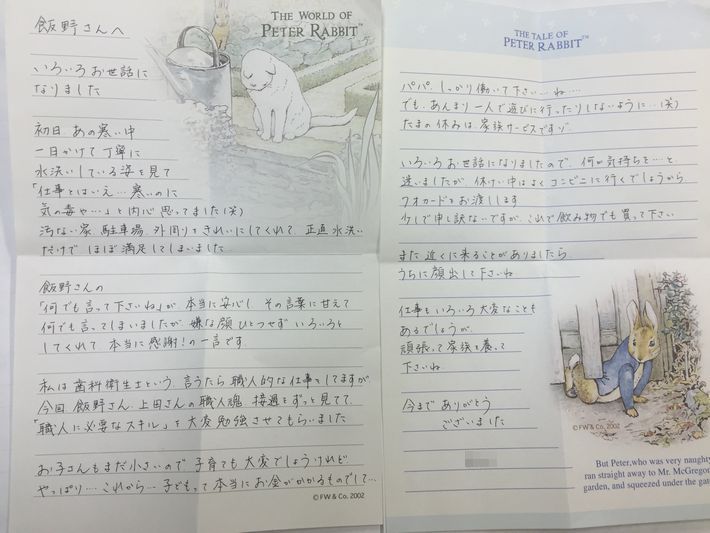 THE WORLD OF
PETER RABBIT™
飯野さんへ
いろいろお世話に
なりました
初日 あの寒い中
一日かけて丁寧に
水洗いしている姿を見て
「仕事とはいえ… 寒いのに
気の毒や…」と内心思ってました(笑)
汚ない家、駐車場、外周り、きれいにしてくれて 正直 水洗い
だけで ほぼ満足してしまいました
飯野さんの
「何でも言って下さいね」が 本当に安心し その言葉に甘えて
何でも言ってしまいましたが 嫌な顔ひとつせず いろいろと
してくれて 本当に感謝!の一言です
私は歯科衛生士という 言うたら職人的な仕事してますが
今回 飯野さん 上田さんの職人魂 接遇をずっと見てて
「職人に必要なスキル」を大変勉強させてもらいました
お子さんもまだ小さいので 子育ても大変でしょうけれど
やっぱり… これから… 子どもって本当にお金がかかるものでして…
©FW & Co. 2002
THE TALE OF
PETER RABBIT™
パパ しっかり働いて下さいね…
でも、あんまり一人で遊びに行ったりしないように!(笑)
たまの休みは家族サービスですヨ
いろいろお世話になりましたので 何か気持ちを…と
迷いましたが 休けい中はよくコンビニに行くでしょうから
クオカードをお渡しします
で申し訳ないですが これで飲み物でも買って下さい
また 近くに来ることがありましたら
うちに顔出して下さいね
仕事もいろいろ大変なことも
あるでしょうが
頑張って家族を養って
下さいね
今まで ありがとう
ございました
©FW & Co. 2002
But Peter, who was very naughty
ran straight away to Mr. McGregor
garden, and squeezed under the